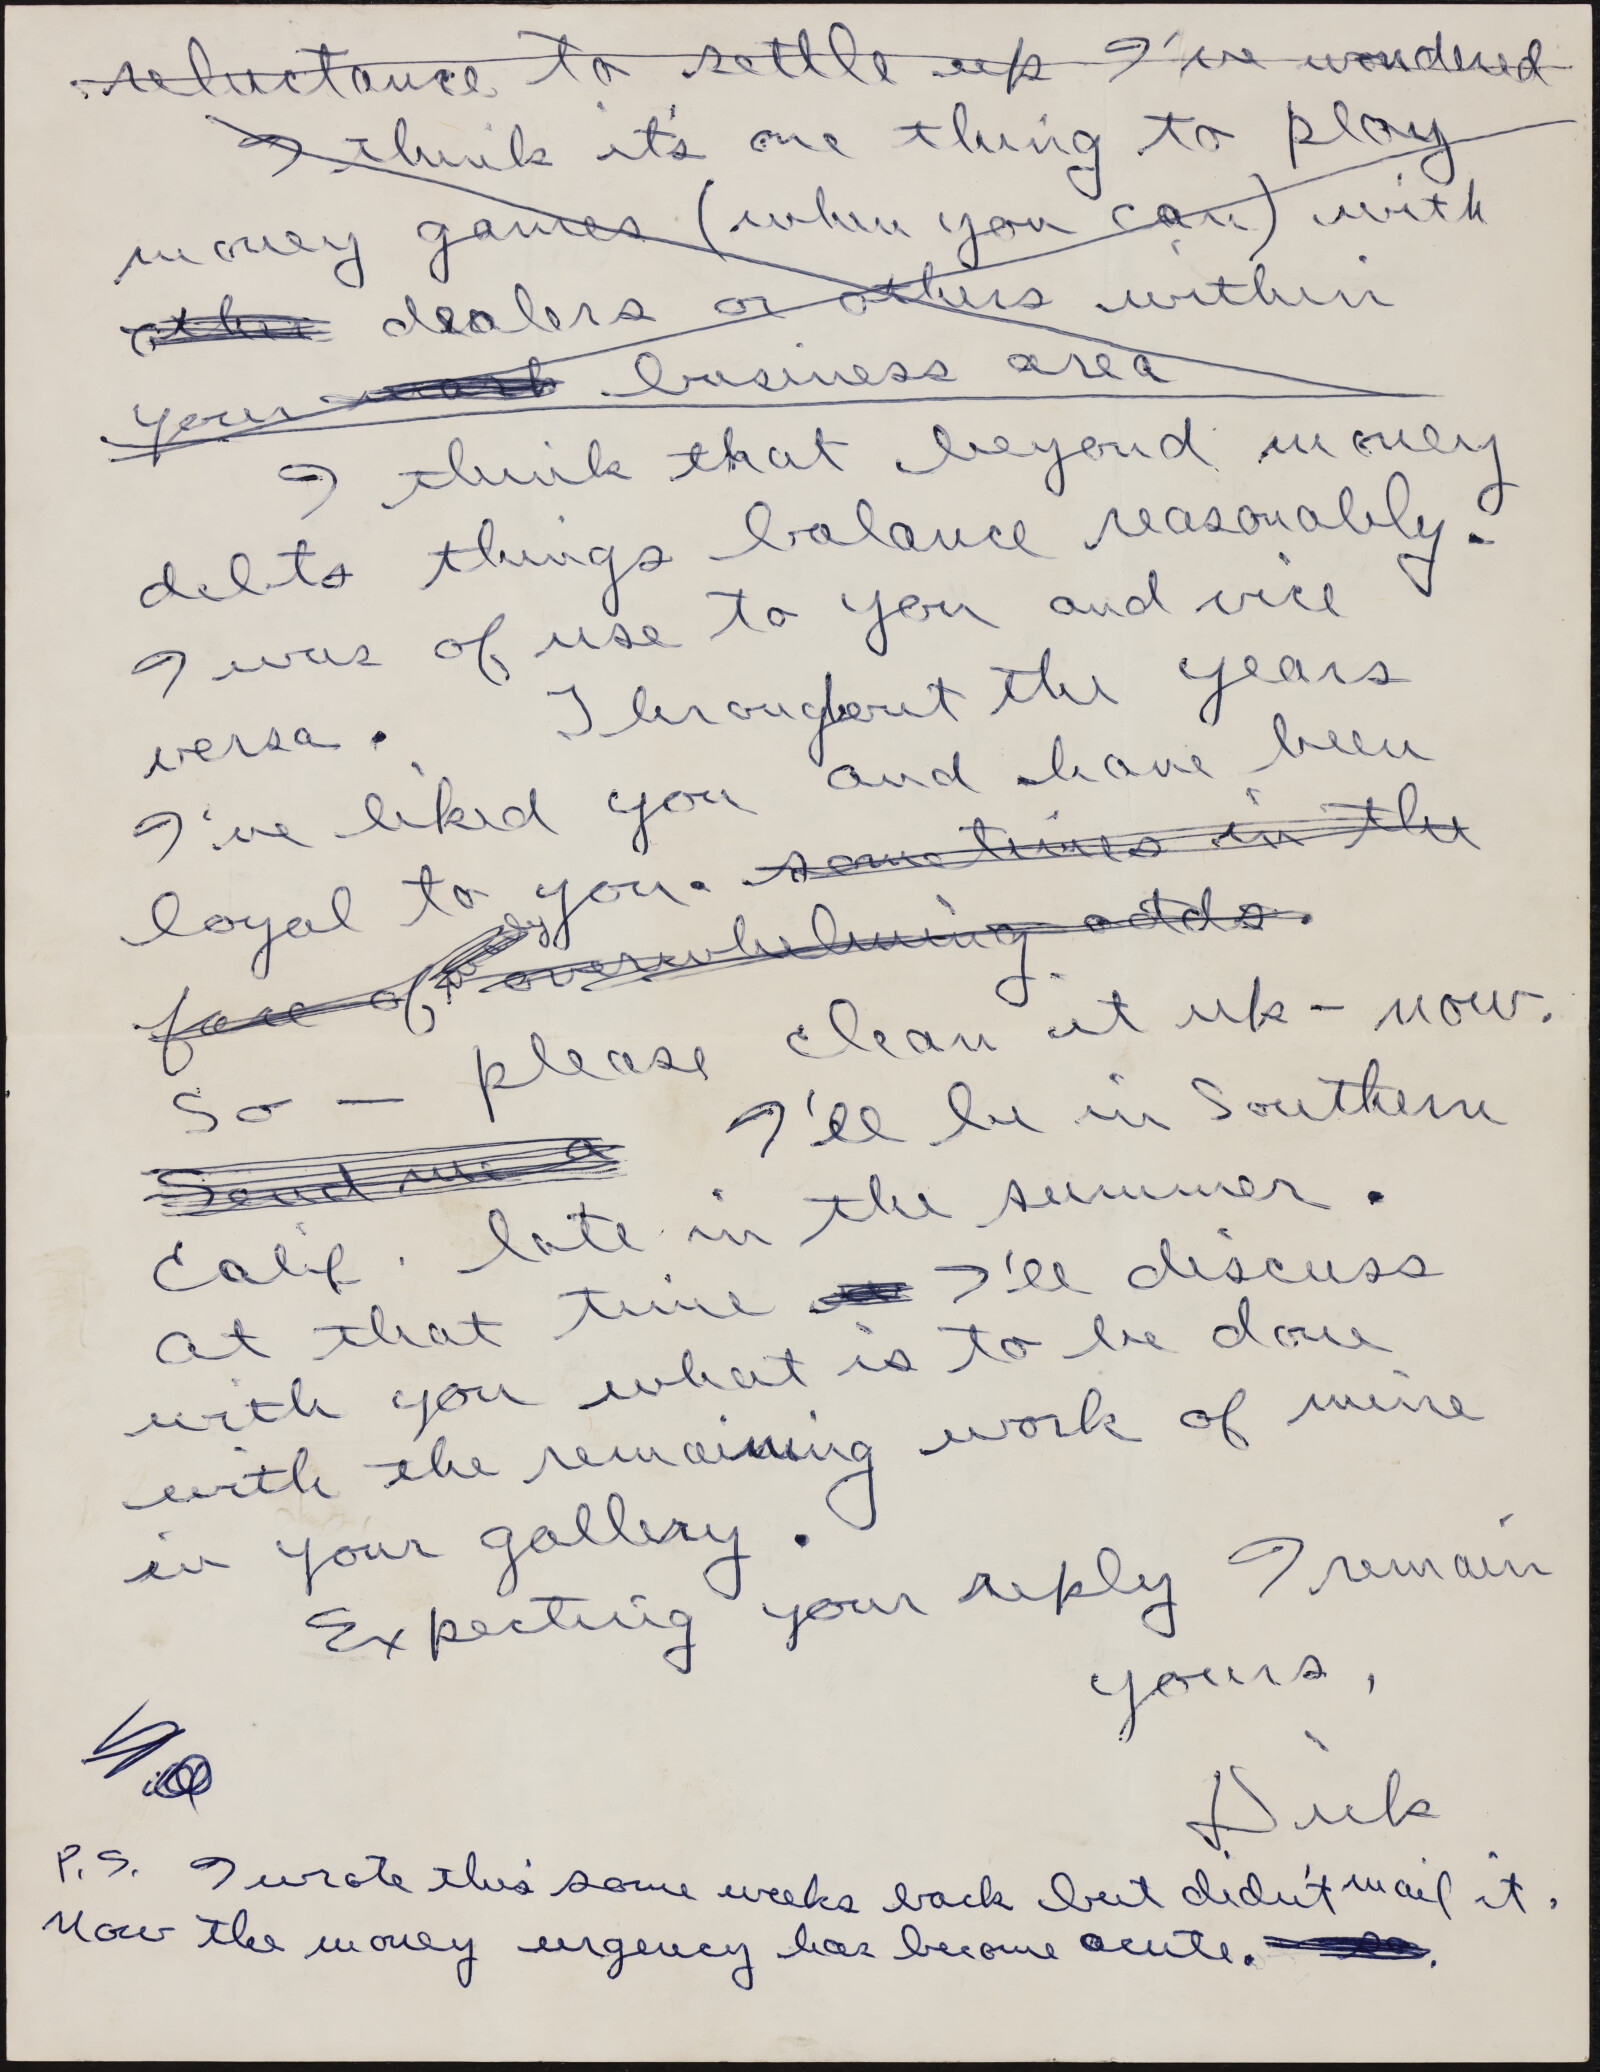 reluctance to settle up I've wondered
I think it's one thing to play
money games (when you can) with
other dealers or others within
your work business area
I think that beyond money
debts things balance reasonably.
I was of use to you and vice
versa. Throughout the years
I've liked you and have been
loyal to you. sometimes in the
face of overwhelming odds.
So — please clean it up – now.
Send me a I'll be in Southern
Calif. late in the summer.
At that time I'll discuss
with you what is to be done
with the remaining work of mine
in your gallery.
Expecting your reply I remain
yours,
Dick
P.S. I wrote this some weeks back but didn't mail it.
Now the money urgency has become acute.